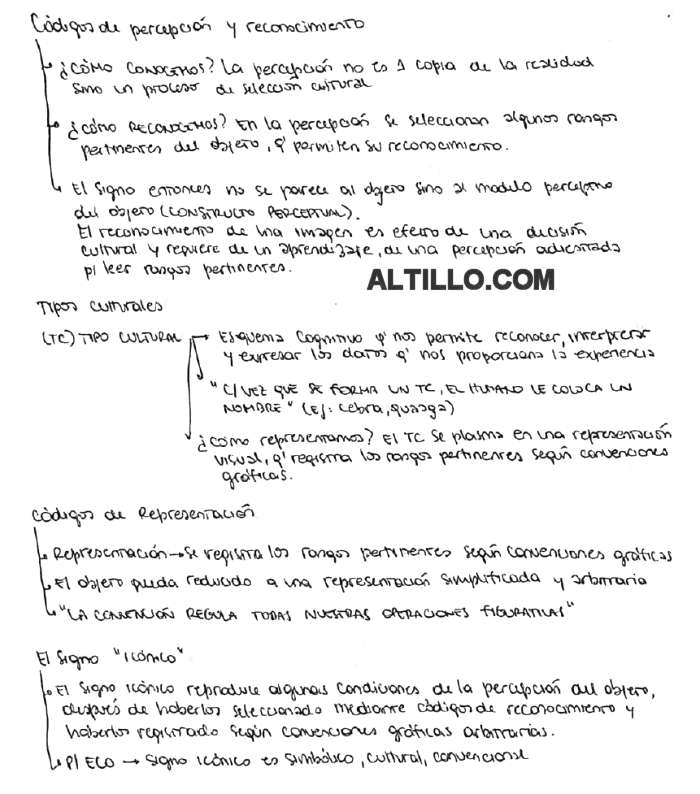 Códigos de percepción y reconocimiento
¿CÓMO CONOCEMOS? La percepción no es 1 copia de la realidad
sino un proceso de selección cultural
¿cómo RECONOCEMOS? En la percepción se seleccionan algunos rasgos
pertinentes del objeto, q' permiten su reconocimiento.
El signo entonces no se parece al objeto sino al modelo perceptivo
del objeto (CONSTRUCTO PERCEPTUAL).
El reconocimiento de una imagen es efecto de una decisión
cultural y requiere de un aprendizaje, de una percepción adiestrada
p/ leer rasgos pertinentes.
ALTILLO.COM
Tipos culturales
(TC) TIPO CULTURAL → Esquema cognitivo q' nos permite reconocer, interpretar
y expresar los datos q' nos proporciona la experiencia
"C/ VEZ QUE SE FORMA UN TC, EL HUMANO LE COLOCA UN
NOMBRE" (Ej: cebra, quagga)
¿cómo representamos? El TC se plasma en una representación
visual, q' registra los rasgos pertinentes según convenciones
gráficas.
Códigos de Representación
Representación → Se registra los rasgos pertinentes según convenciones gráficas
El objeto queda reducido a una representación simplificada y arbitraria
"LA CONVENCIÓN REGULA TODAS NUESTRAS OPERACIONES FIGURATIVAS"
El signo "icónico"
El signo icónico reproduce algunas condiciones de la percepción del objeto,
después de haberlos seleccionado mediante códigos de reconocimiento y
haberlos registrado según convenciones gráficas arbitrarias.
P/ ECO → signo icónico es simbólico, cultural, convencional